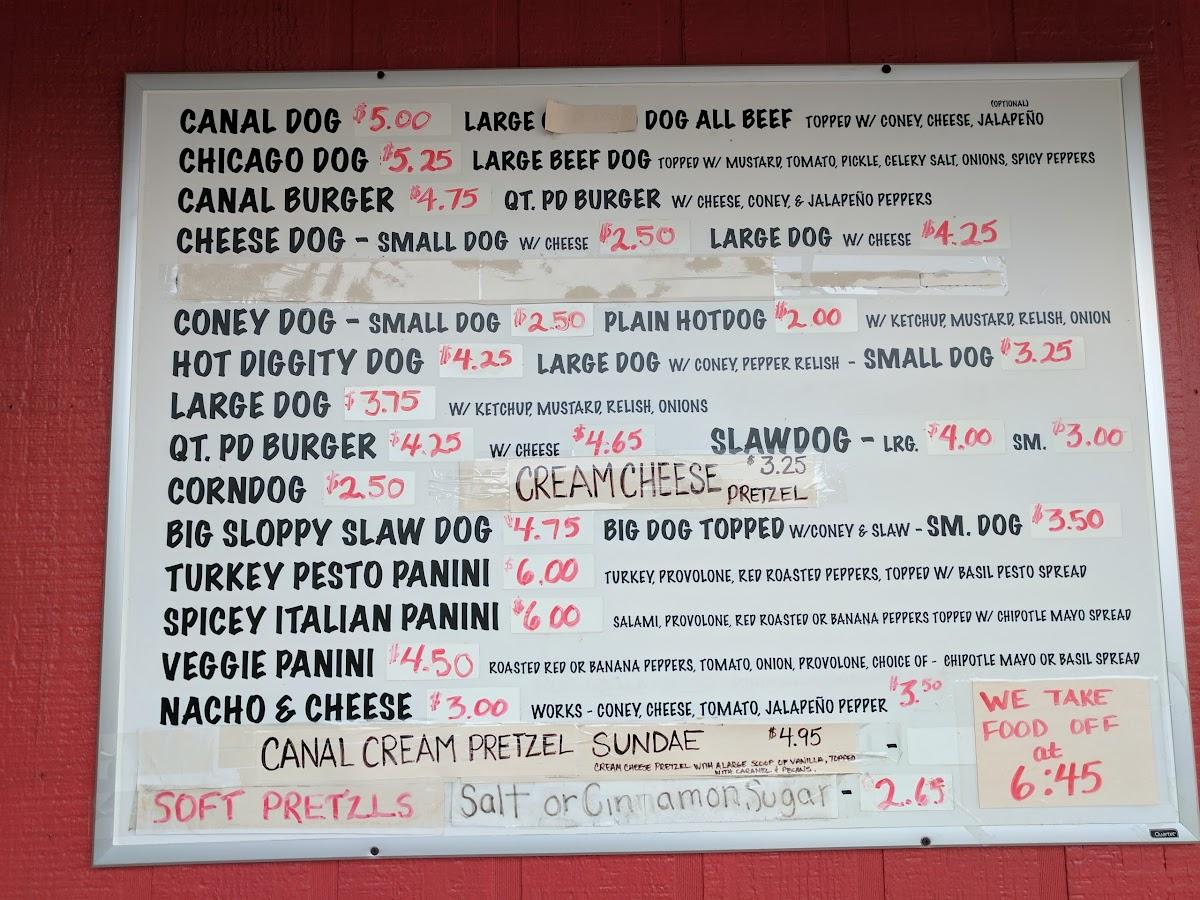 CANAL DOG $5.00 LARGE DOG ALL BEEF TOPPED W/ CONEY, CHEESE, JALAPEÑO (OPTIONAL)
CHICAGO DOG $5.25 LARGE BEEF DOG TOPPED W/ MUSTARD, TOMATO, PICKLE, CELERY SALT, ONIONS, SPICY PEPPERS
CANAL BURGER $4.75 QT. PD BURGER W/ CHEESE, CONEY, & JALAPEÑO PEPPERS
CHEESE DOG - SMALL DOG W/ CHEESE $2.50 LARGE DOG W/ CHEESE $4.25
CONEY DOG - SMALL DOG $2.50 PLAIN HOTDOG $2.00 W/ KETCHUP, MUSTARD, RELISH, ONION
HOT DIGGITY DOG $4.25 LARGE DOG W/ CONEY, PEPPER RELISH - SMALL DOG $3.25
LARGE DOG $3.75 W/ KETCHUP, MUSTARD, RELISH, ONIONS
QT. PD BURGER $4.25 W/ CHEESE $4.65 SLAWDOG - LRG. $4.00 SM. $3.00
CORNDOG $2.50 CREAM CHEESE PRETZEL $3.25
BIG SLOPPY SLAW DOG $4.75 BIG DOG TOPPED W/CONEY & SLAW - SM. DOG $3.50
TURKEY PESTO PANINI $6.00 TURKEY, PROVOLONE, RED ROASTED PEPPERS, TOPPED W/ BASIL PESTO SPREAD
SPICEY ITALIAN PANINI $6.00 SALAMI, PROVOLONE, RED ROASTED OR BANANA PEPPERS TOPPED W/ CHIPOTLE MAYO SPREAD
VEGGIE PANINI $4.50 ROASTED RED OR BANANA PEPPERS, TOMATO, ONION, PROVOLONE, CHOICE OF - CHIPOTLE MAYO OR BASIL SPREAD
NACHO & CHEESE $3.00 WORKS - CONEY, CHEESE, TOMATO, JALAPEÑO PEPPER $3.50
CANAL CREAM PRETZEL SUNDAE $4.95 -
CREAM CHEESE PRETZEL WITH A LARGE SCOOP OF VANILLA, TOPPED
WITH CARAMEL & PECANS.
SOFT PRETZLS Salt or Cinnamon, Sugar - 2.65
WE TAKE
FOOD OFF
at
6:45
Quartet